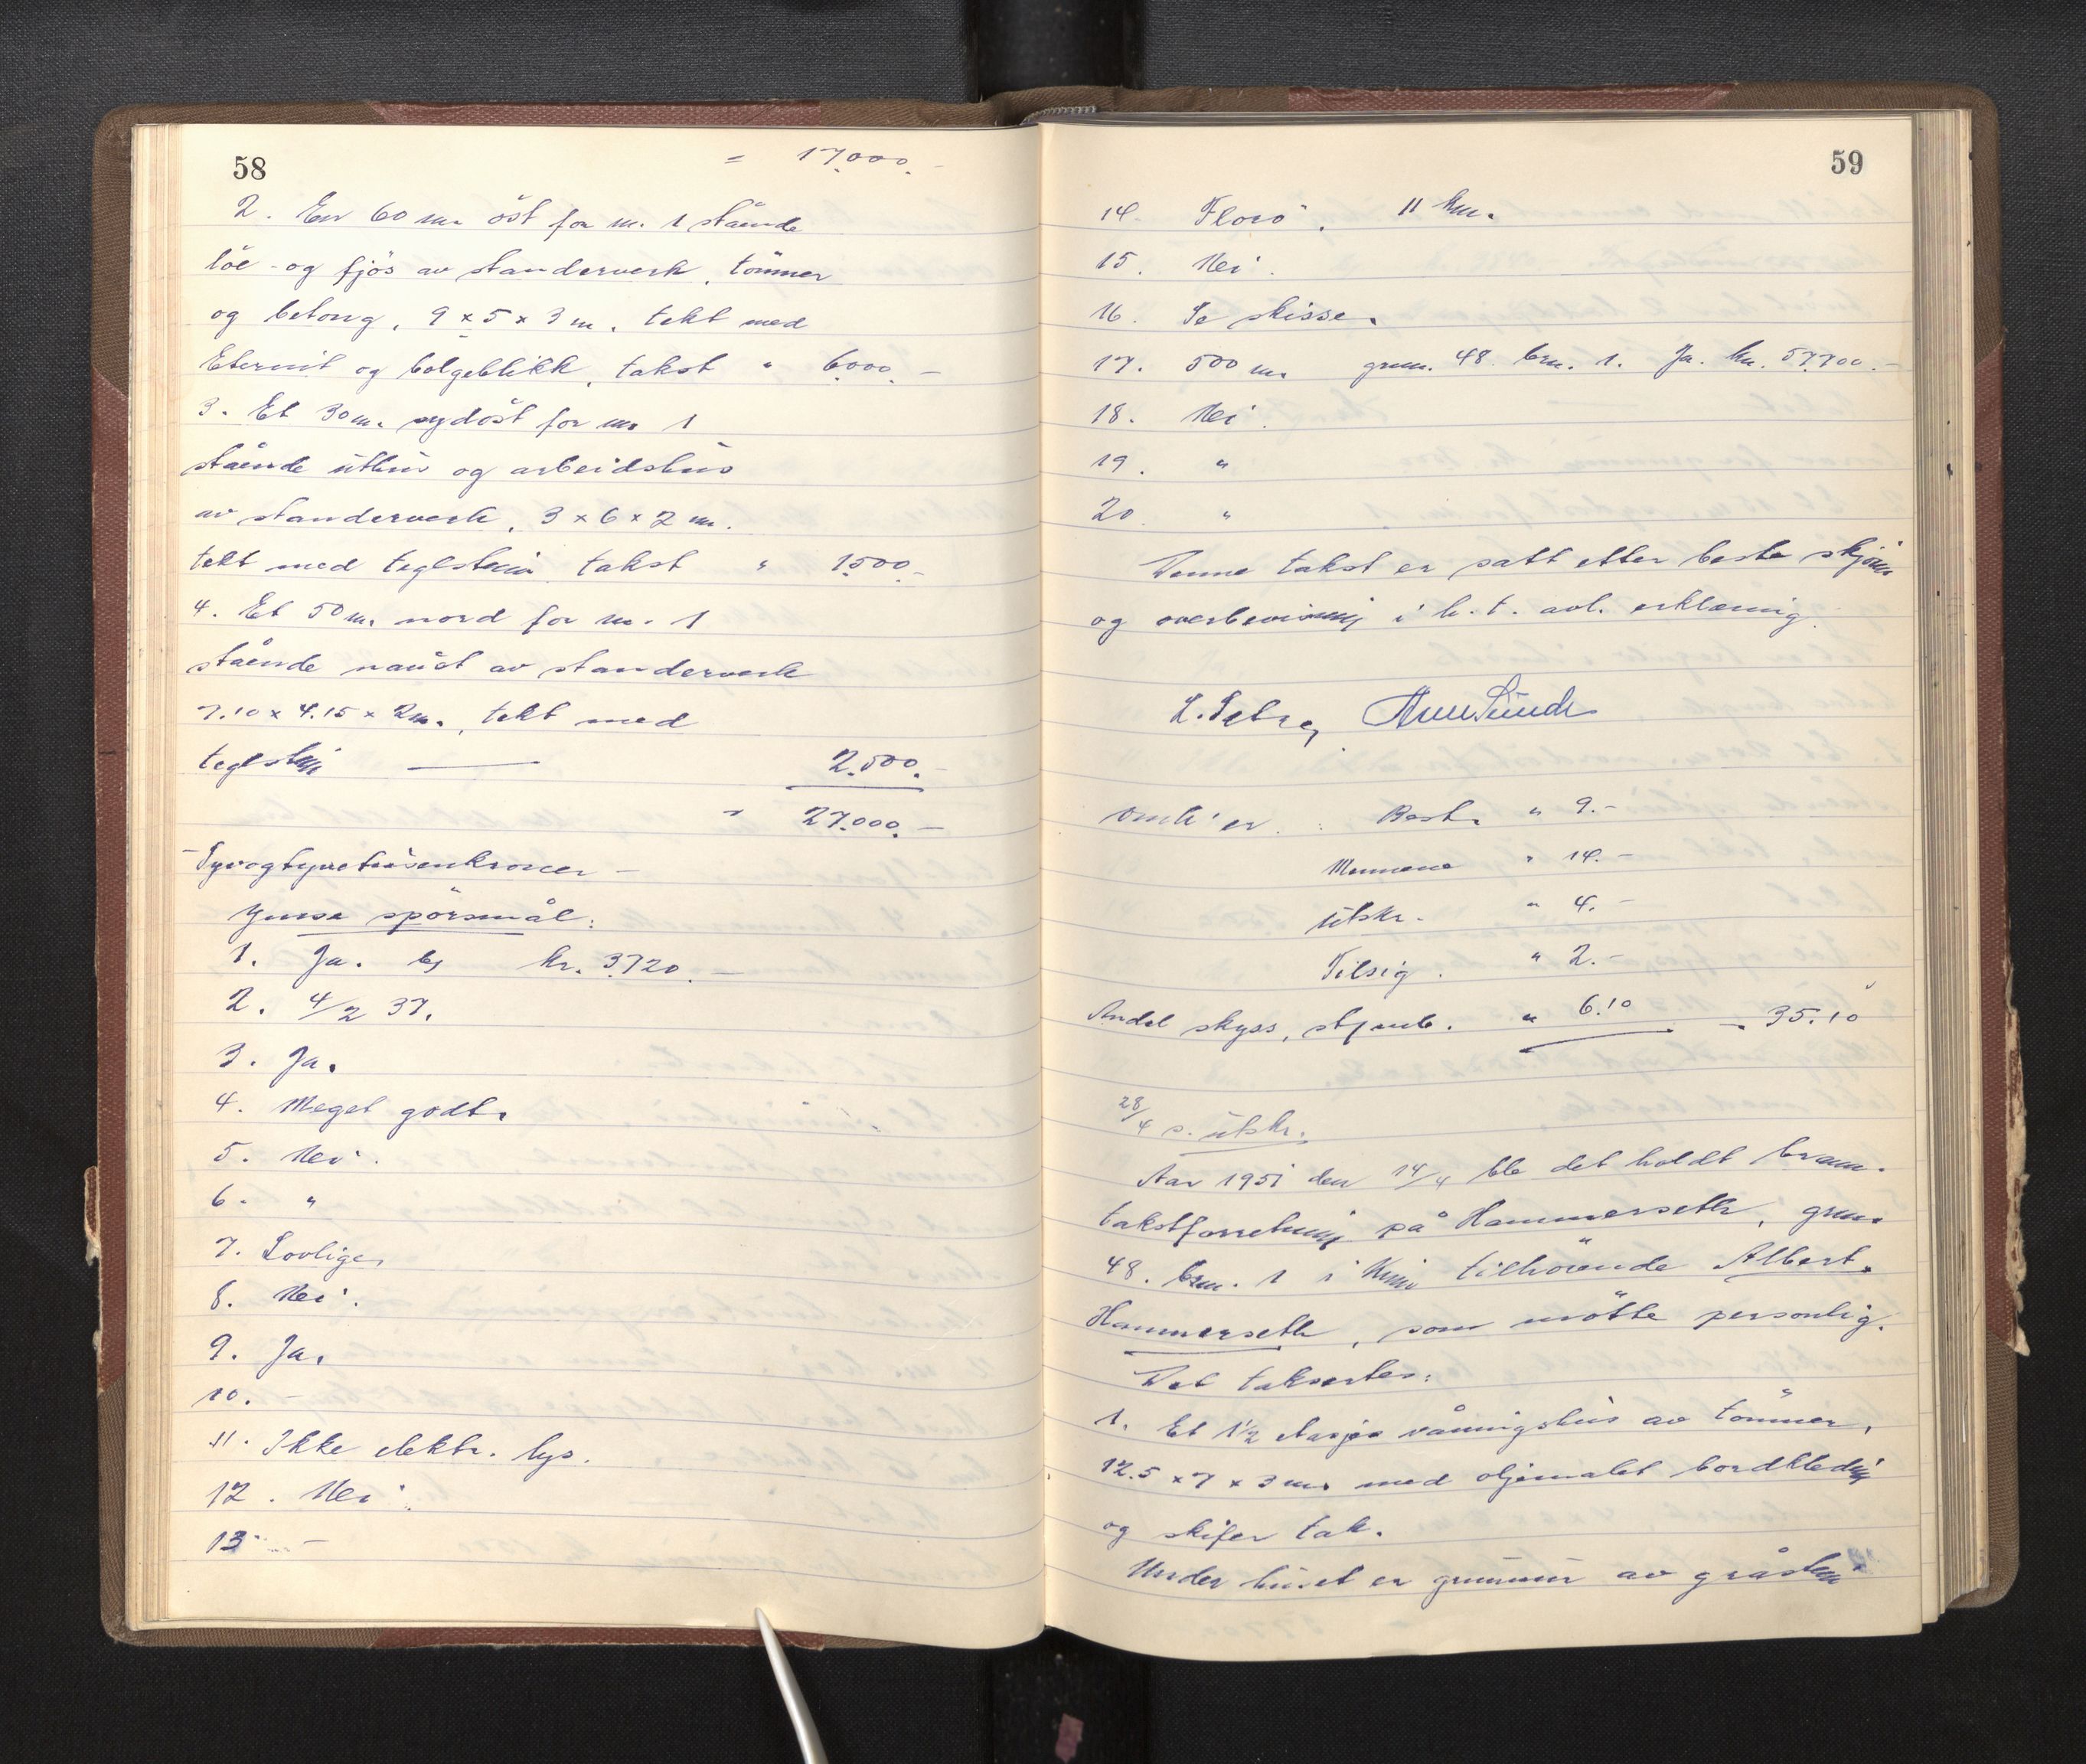 58
= 17.000.-
2. En 60 m. öst for nr. 1 stående
löe- og fjös av standerverk, tömmer
og betong, 9 x 5 x 3 m, tekt med
Eternit og bølgeblikk, takst " 6.000.-
3. Et 30 m. sydöst for nr. 1
stående uthus og arbeidshus
av standerverk, 3 x 6 x 2 m.
tekt med teglstein takst " 1500.-
4. Et 50 m. nord for nr. 1
stående naust av standerverk
7.10 x 4.15 x 2 m., tekt med
teglstein — 2.500.-
" 27.000.-
Syvogtyvetusenkroner -
Ymse spörsmål:
1. Ja. kr. 3.720.-
2. 4/2 37.
3. Ja.
4. Meget godt.
5. Nei.
6. "
7. Lovlige.
8. Nei.
9. Ja.
10. -
11. Ikke elektr. lys.
12. Nei.
13 -
59
14. Florö, 11 km.
15. Nei.
16. Se skisse.
17. 500 m. gnr. 48 brn. 1. Ja. kr. 57.700.-
18. Nei.
19. "
20. "
Denne takst er satt etter beste skjönn
og overbevisning i h.t. avl. erklæring.
Omk'er: Best. " 9.-
Mennene " 14.-
Utskr. " 4.-
Tilsig. " 2.-
Andel skyss, " 6.10 = 35.10
28/4 s. utskr.
Aar 1951 den 14/4 ble det holdt brann-
takstforretning på Hammerseth, gnr.
48. brn. 1 i Kinn tilhörende Albert
Hammerseth, som mötte personlig.
Det takseres:
1. Et 1½ etasjes våningshus av tömmer,
12.5 x 7 x 3 m. med oljemalet bordkledning
og skifer tak.
Under huset er grunnmur av gråstein